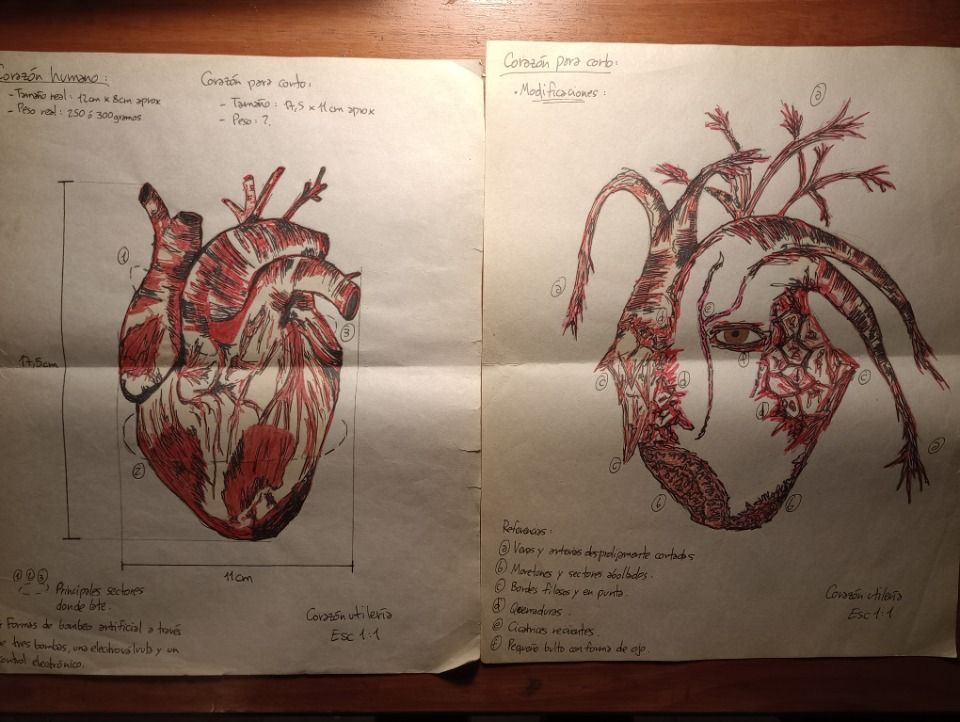 Corazón humano:
- Tamaño real: 12cm x 8cm aprox
- Peso real: 250 ó 300gramos
Corazón para corto:
- Tamaño: 17,5 x 11cm aprox
- Peso: ?
1
3
17,5cm
2
11cm
1 2 3
Principales sectores
donde late.
* Formas de bombeo artificial a través
de tres bombas, una electroválvula y un
control electrónico.
Corazón utilería
Esc 1:1
Corazón para corto:
• Modificaciones:
a
a
d
e
c
f
d
c
d
c
a
b
b
Referencias:
a Venas y arterias desprolijamente cortadas
b Moretones y sectores abollados.
c Bordes filosos y en punta.
d Quemaduras.
e Cicatrices recientes.
f Pequeño bulto con forma de ojo.
Corazón utilería
Esc 1:1